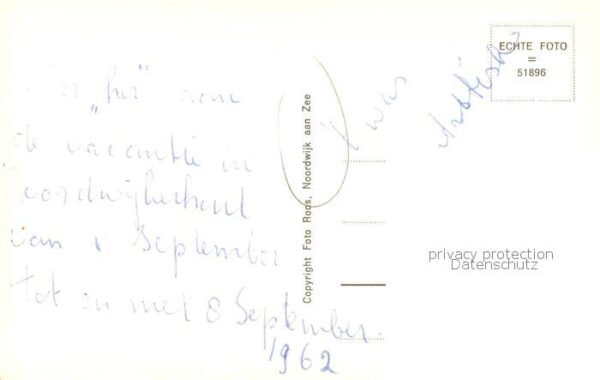 "hier" aan
de vacantie in
Noordwijkerhout
van 1 September
tot en met 8 September.
1962
Copyright Foto Roos, Noordwijk aan Zee
was
ECHTE FOTO
=
51896
privacy protection
Datenschutz